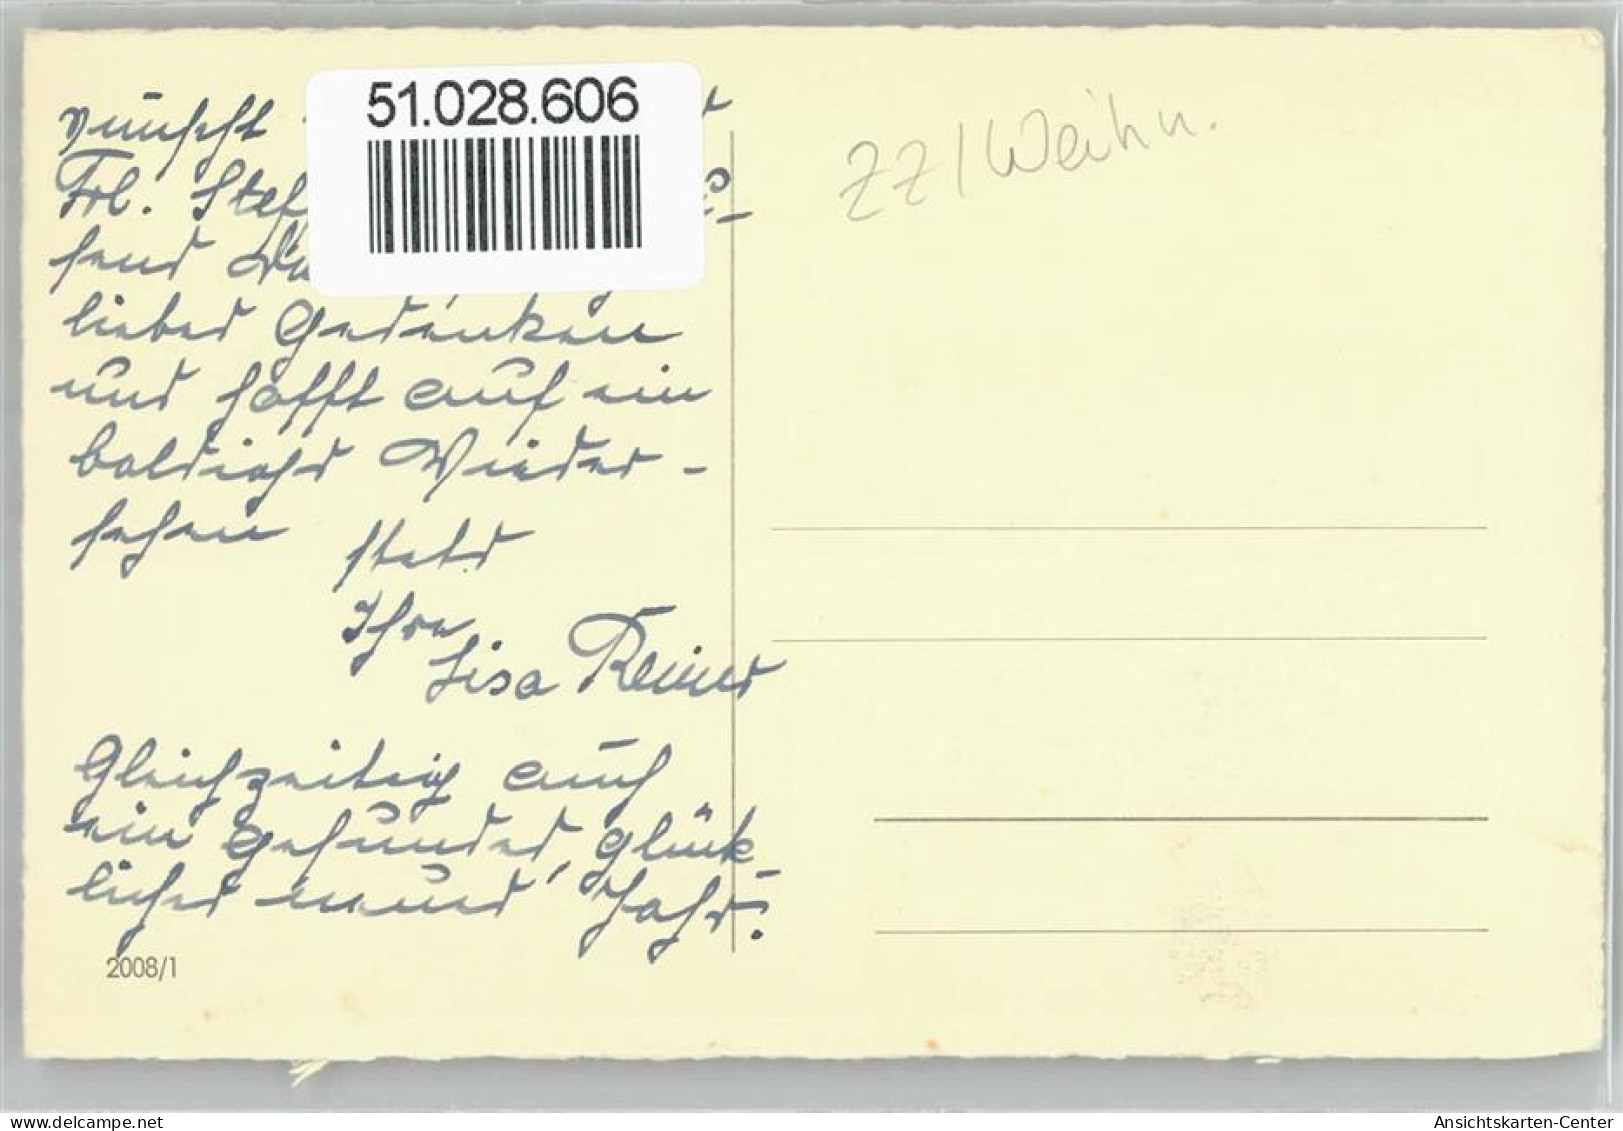 51.028.606
wünscht
Frl. Stef
send
liebes Gedenken
und hofft auf ein
baldiges Wieder-
sehen
stets
Ihre
Lisa Reiner
Gleichzeitig auch
ein gesundes, glück-
liches neues Jahr.
2008/1
ZZ/Weihn.
delcampe.net
Ansichtskarten-Center